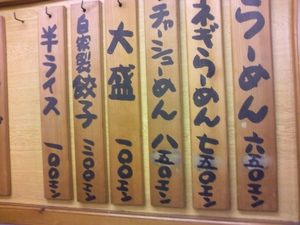 らーめん 六五〇エン
ネぎらーめん 七五〇エン
チャーシューめん 八五〇エン
大盛 一〇〇エン
自家製餃子 三〇〇エン
半ライス 一〇〇エン